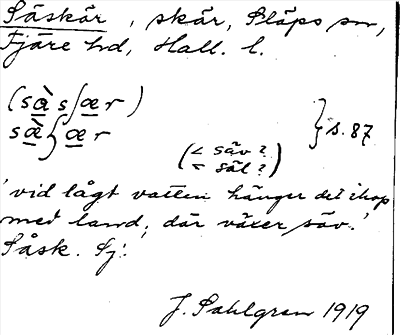 Såskär, skär, Släps sn,
Fjäre hd, Hall. l.
(sà̱sʃæ̱r)
sà̱ʃæ̱r } s. 87
(< säv? < säl?)
'vid lågt vatten hänger det ihop
med land, där växer säv.'
Såsk. Sj.
J. Sahlgren 1919